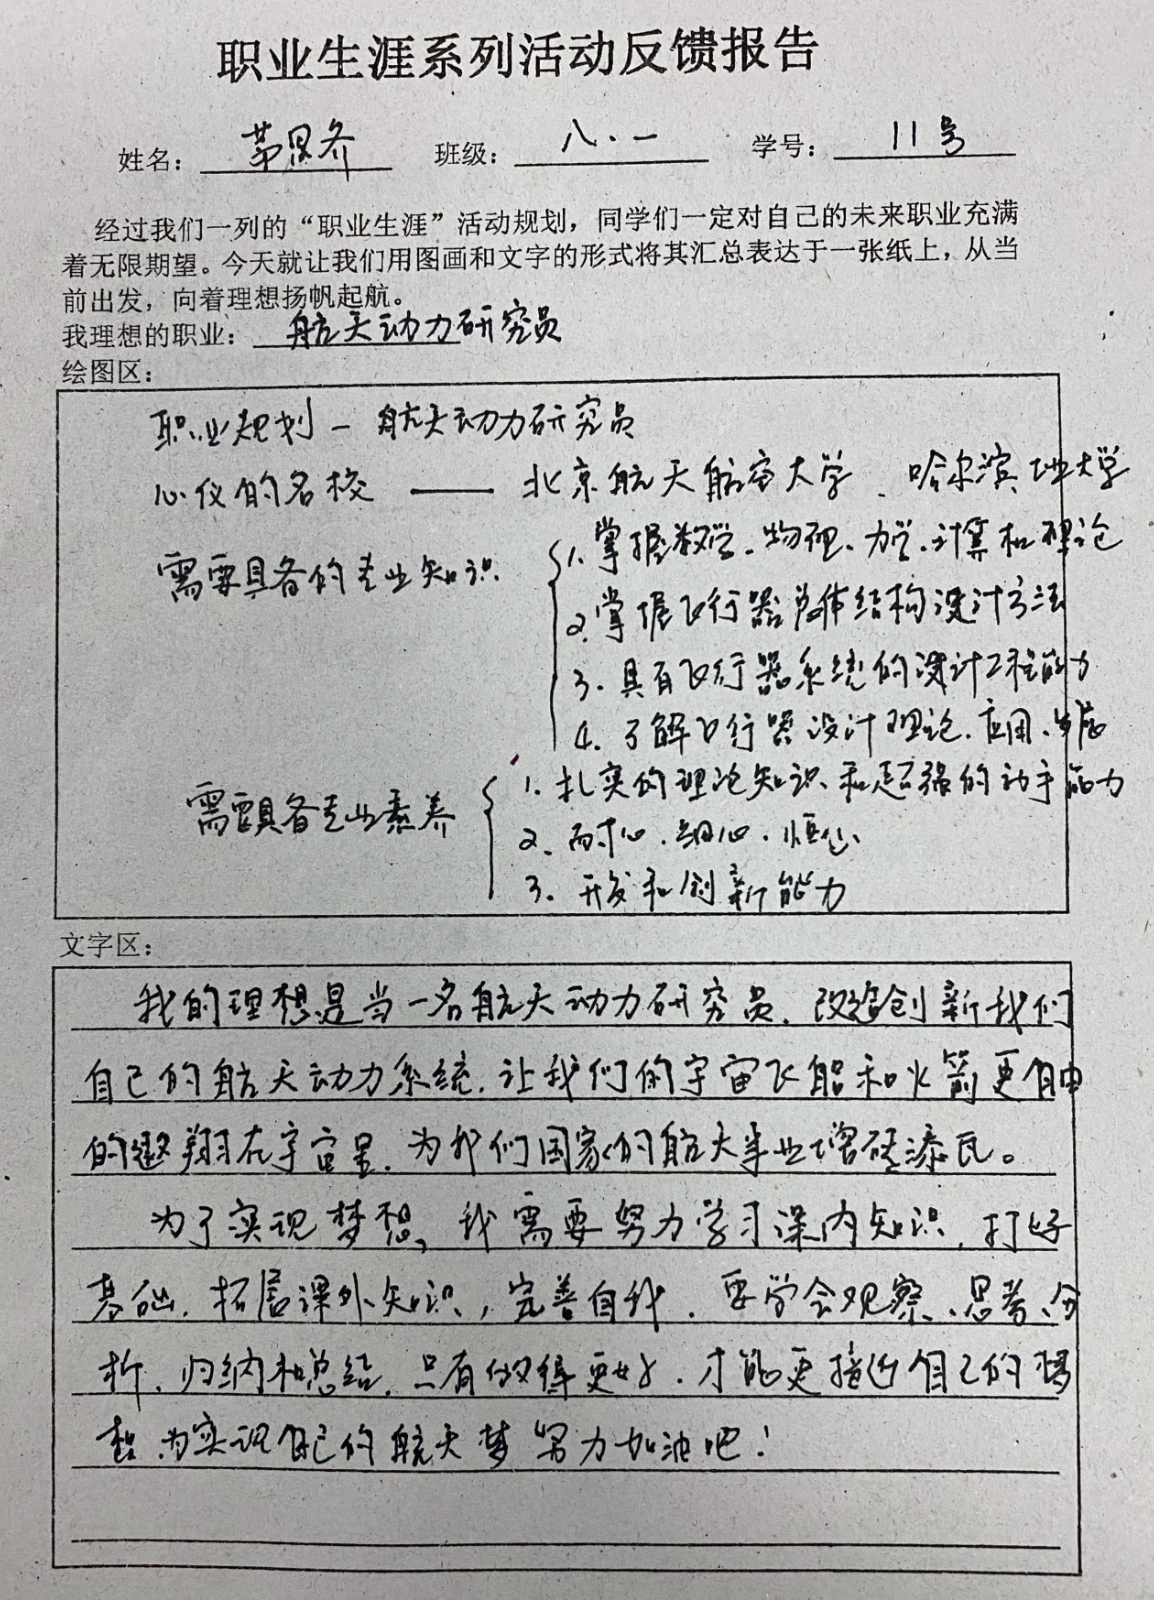 职业生涯系列活动反馈报告
姓名： 班级：八·一 学号：11号
经过我们一列的“职业生涯”活动规划，同学们一定对自己的未来职业充满
着无限期望。今天就让我们用图画和文字的形式将其汇总表达于一张纸上，从当
前出发，向着理想扬帆起航。
我理想的职业：航天动力研究员
绘图区：
职业规划－航天动力研究员
心仪的名校——北京航天航空大学、哈尔滨工业大学
需要具备的专业知识
1.掌握数学、物理、力学、计算和理论
2.掌握飞行器总体结构设计方法
3.具有飞行器系统的设计工程能力
4.了解飞行器设计理论、应用、
需要具备专业素养
1.扎实的理论知识和超强的动手能力
2.耐心、细心、恒心
3.开发和创新能力
文字区：
我的理想是当一名航天动力研究员，改造创新我们
自己的航天动力系统，让我们的宇宙飞船和火箭更自由
的遨翔在宇宙里，为我们国家的航天事业增砖添瓦。
为了实现梦想，我需要努力学习课内知识，打好
基础，拓展课外知识，完善自我，要学会观察、思考、分
析、归纳和总结，只有做得更好，才能更接近自己的梦
想，为实现自己的航天梦努力加油吧！